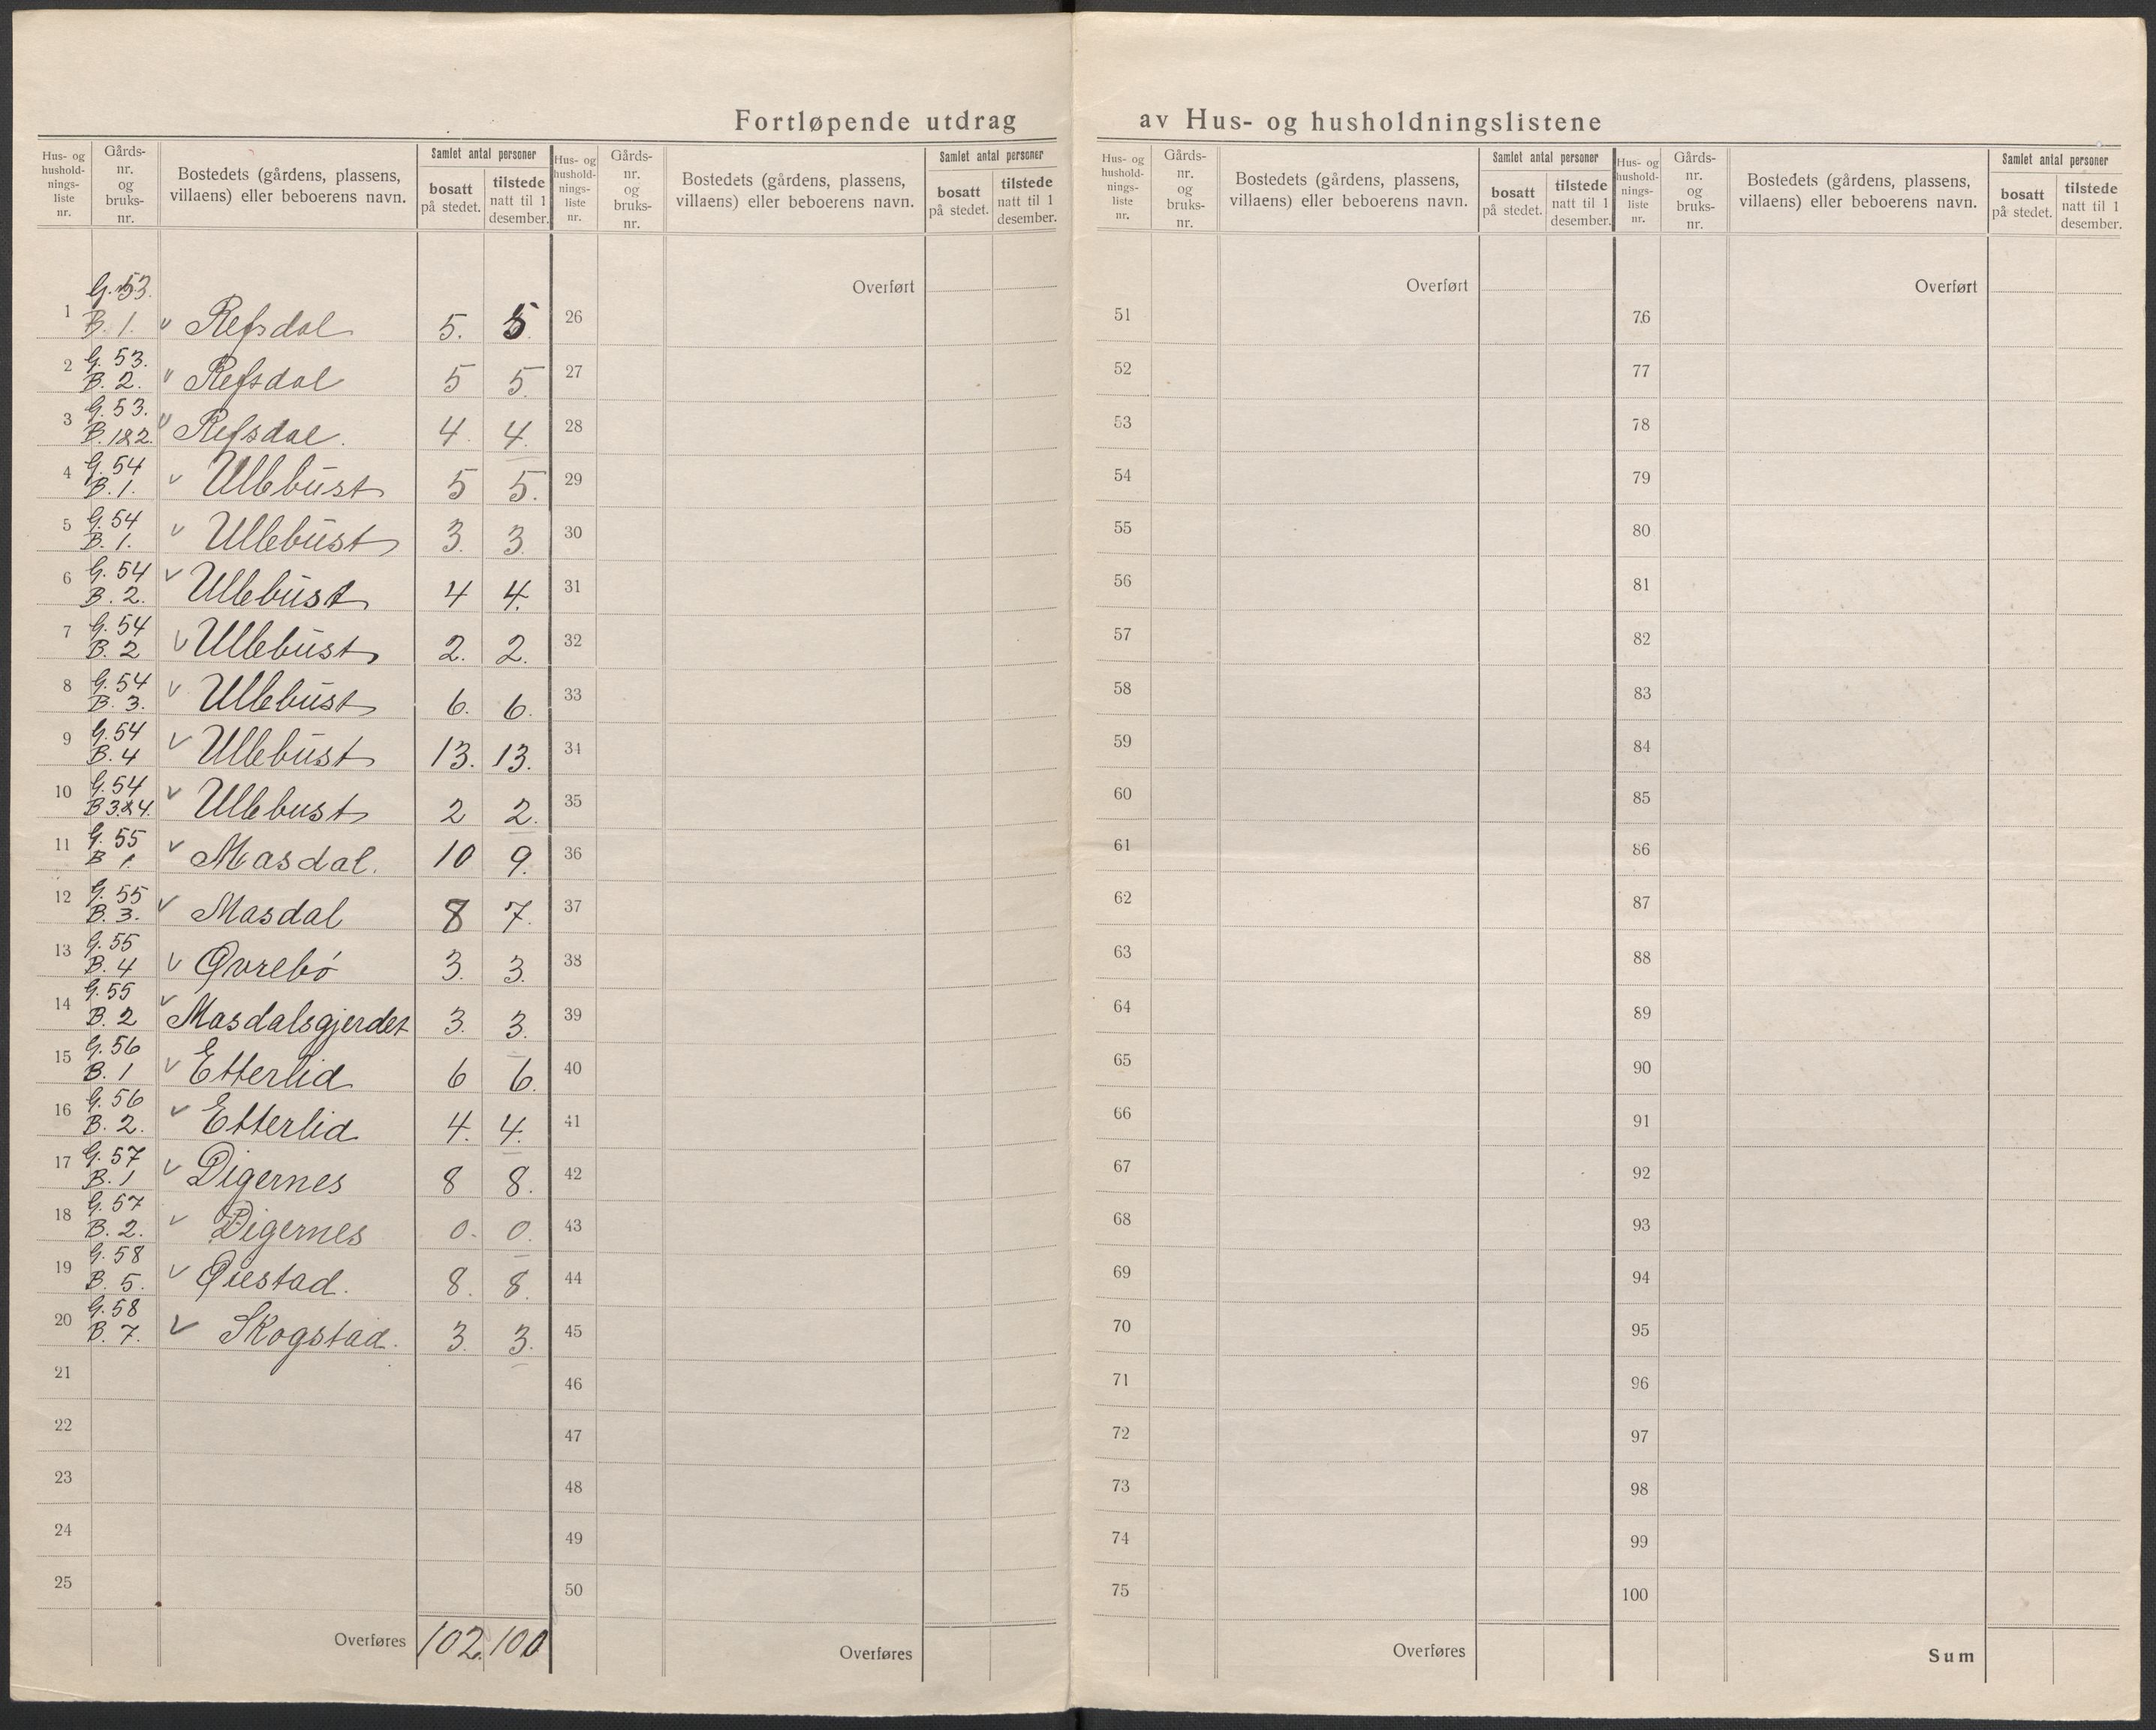 Fortløpende utdrag av Hus- og husholdningslistene
Hus- og husholdnings-liste nr. | Gårds-nr. og bruks-nr. | Bostedets (gårdens, plassens, villaens) eller beboerens navn. | Samlet antal personer | bosatt på stedet. | tilstede natt til 1 desember.
1 G. 53. B. 1. v Refsdal 5. 5
2 G. 53. B. 2. v Refsdal 5 5.
3 G. 53. B. 1&2. v Refsdal. 4. 4.
4 G. 54 B. 1. v Ullebust 5 5.
5 G. 54 B. 1. v Ullebust 3. 3.
6 G. 54 B. 2. v Ullebust 4 4.
7 G. 54 B. 2 v Ullebust 2. 2.
8 G. 54 B. 3. v Ullebust 6. 6.
9 G. 54 B. 4 v Ullebust 13. 13.
10 G. 54 B 3&4. v Ullebust 2 2.
11 G. 55 B 1. v Masdal. 10 9.
12 G. 55 B. 3. v Masdal 8 7.
13 G. 55 B. 4 v Øvrebø 3. 3.
14 G. 55 B. 2 v Masdalsgjerdet 3. 3.
15 G. 56 B. 1 v Etterlid 6 6.
16 G. 56 B. 2. v Etterlid 4. 4.
17 G. 57 B. 1 v Digernes 8 8.
18 G. 57 B. 2. v Digernes 0. 0.
19 G. 58 B. 5. v Øiestad. 8. 8.
20 G. 58 B. 7. v Skogstad. 3. 3.
21
22
23
24
25
Overføres 102. 100
Hus- og husholdnings-liste nr. | Gårds-nr. og bruks-nr. | Bostedets (gårdens, plassens, villaens) eller beboerens navn. | Samlet antal personer | bosatt på stedet. | tilstede natt til 1 desember.
Overført
26
27
28
29
30
31
32
33
34
35
36
37
38
39
40
41
42
43
44
45
46
47
48
49
50
Overføres
Hus- og husholdnings-liste nr. | Gårds-nr. og bruks-nr. | Bostedets (gårdens, plassens, villaens) eller beboerens navn. | Samlet antal personer | bosatt på stedet. | tilstede natt til 1 desember.
Overført
51
52
53
54
55
56
57
58
59
60
61
62
63
64
65
66
67
68
69
70
71
72
73
74
75
Overføres
Hus- og husholdnings-liste nr. | Gårds-nr. og bruks-nr. | Bostedets (gårdens, plassens, villaens) eller beboerens navn. | Samlet antal personer | bosatt på stedet. | tilstede natt til 1 desember.
Overført
76
77
78
79
80
81
82
83
84
85
86
87
88
89
90
91
92
93
94
95
96
97
98
99
100
Sum